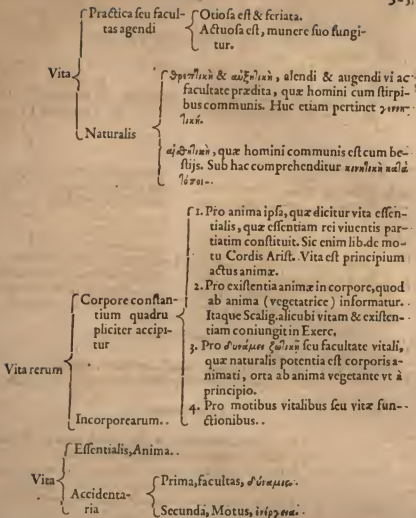 Practica seu facul-
tas agendi
Otiosa est & feriata.
Actuosa est, munere suo fungi-
tur.
Vita
Naturalis
θρεπτικὴ & αὐξητικὴ, alendi & augendi vi ac
facultate prædita, quæ homini cum stirpi-
bus communis. Huc etiam pertinet γεννη-
τική.
αἰσθητικὴ, quæ homini communis est cum be-
stijs. Sub hac comprehenditur κινητικὴ κατὰ
τόπον..
Vita rerum
Corpore constan-
tium quadru
pliciter accipi-
tur
1. Pro anima ipsa, quæ dicitur vita essen-
tialis, quæ essentiam rei viuentis par-
tiatim constituit. Sic enim lib. de mo-
tu Cordis Arist. Vita est principium
actus animæ.
2. Pro existentia animæ in corpore, quod
ab anima (vegetatrice) informatur.
Itaque Scalig. alicubi vitam & existen-
tiam coniungit in Exerc.
3. Pro δυνάμει ζωτικῇ seu facultate vitali,
quæ naturalis potentia est corporis a-
nimati, orta ab anima vegetante vt à
principio.
4. Pro motibus vitalibus seu vitæ fun-
ctionibus..
Incorporearum..
Vita
Essentialis, Anima..
Accidenta-
ria
Prima, facultas, δύναμις.
Secunda, Motus, ἐνέργεια.